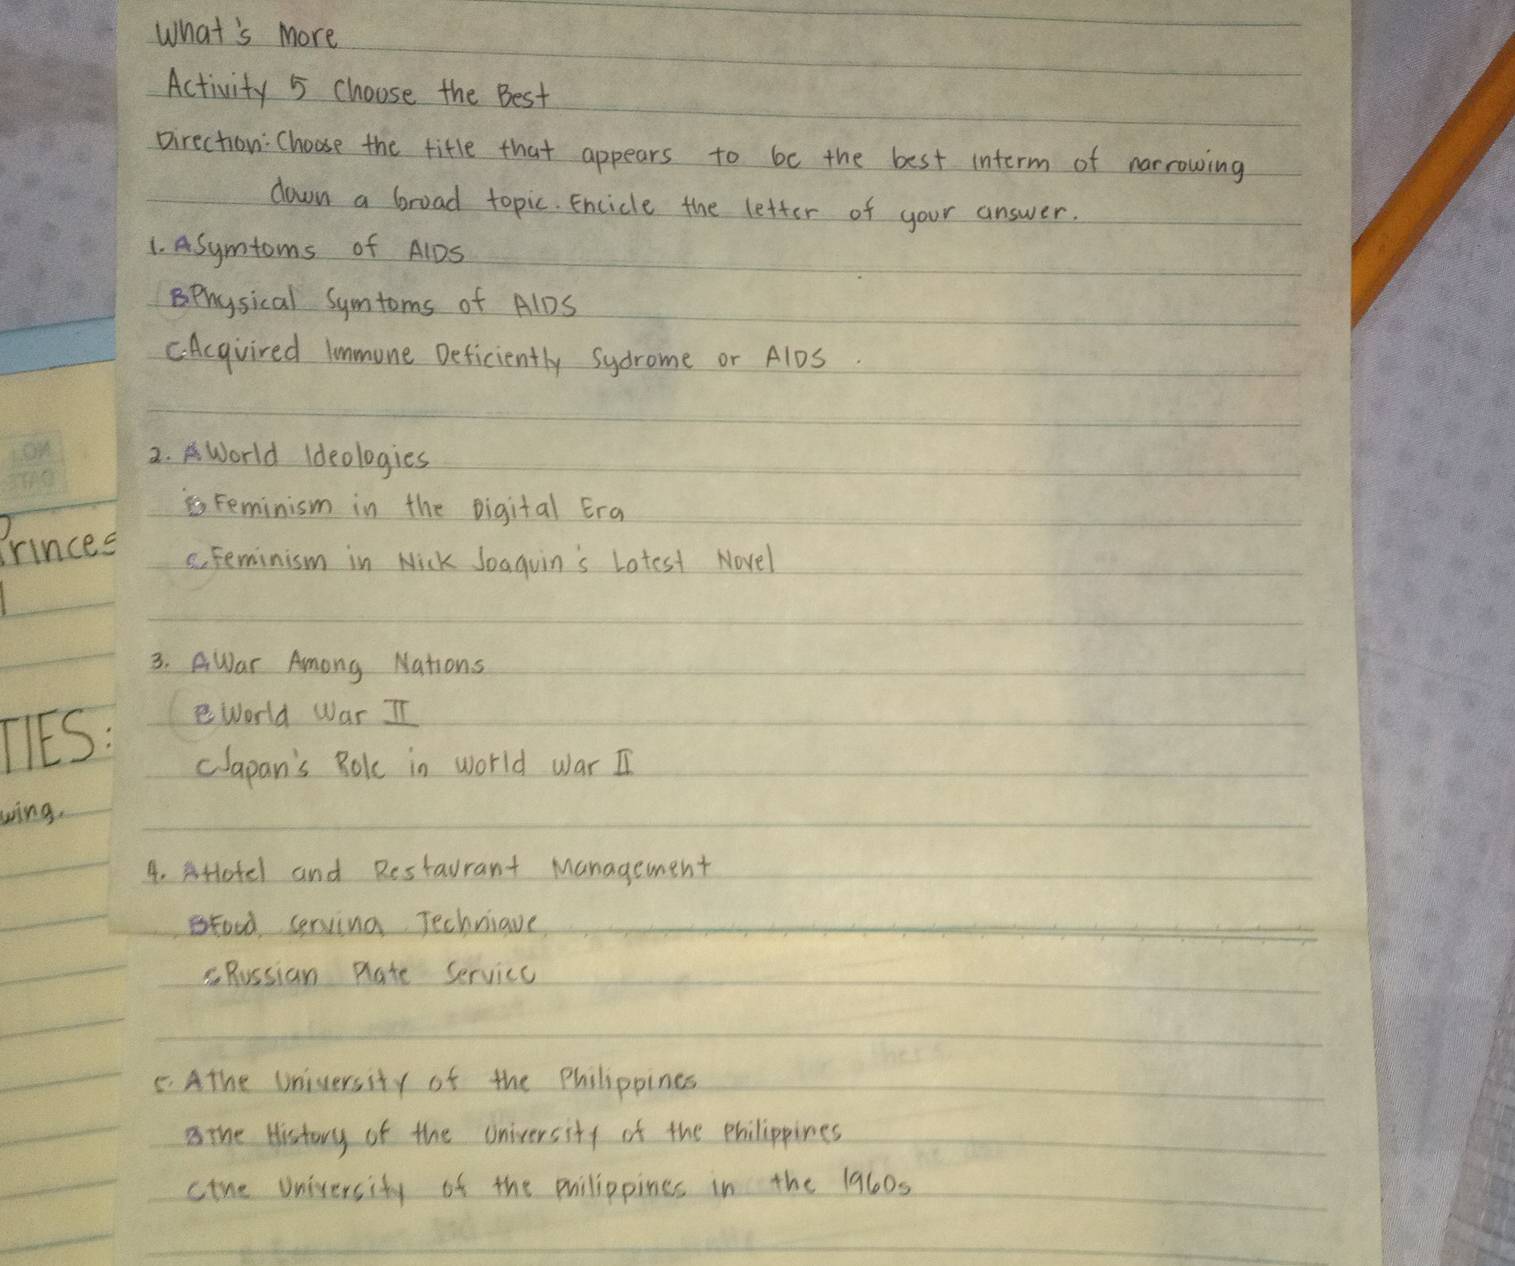 What's More
Activity 5 Choose the Best
Direction: Choose the title that appears to be the best interm of narrowing
down a broad topic. Encicle the letter of your answer.
1. A Symtoms of AIDS
B Physical Symtoms of AIDS
C. Acquired Immune Deficiently Sydrome or AIDS.
2. A World Ideologies
B Feminism in the Digital Era
C. Feminism in Nick Joaquin's Latest Novel
3. A War Among Nations
B World War II
C Japan's Role in World War II
4. A Hotel and Restaurant Management
B Food serving Technique
C Russian Plate Service
5. A The University of the Philippines
B The History of the University of the Philippines
C The University of the Philippines in the 1960s
Princes
TIES:
wing.
NO.
DATE